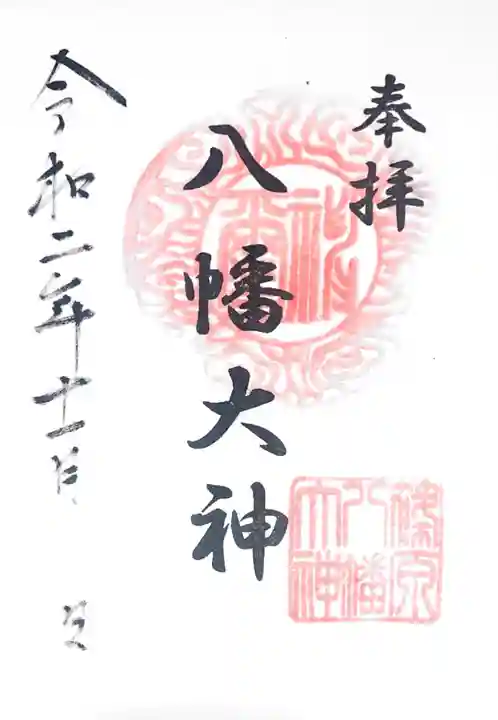 奉拝
八幡大神
篠原八幡大神
令和二年十一月